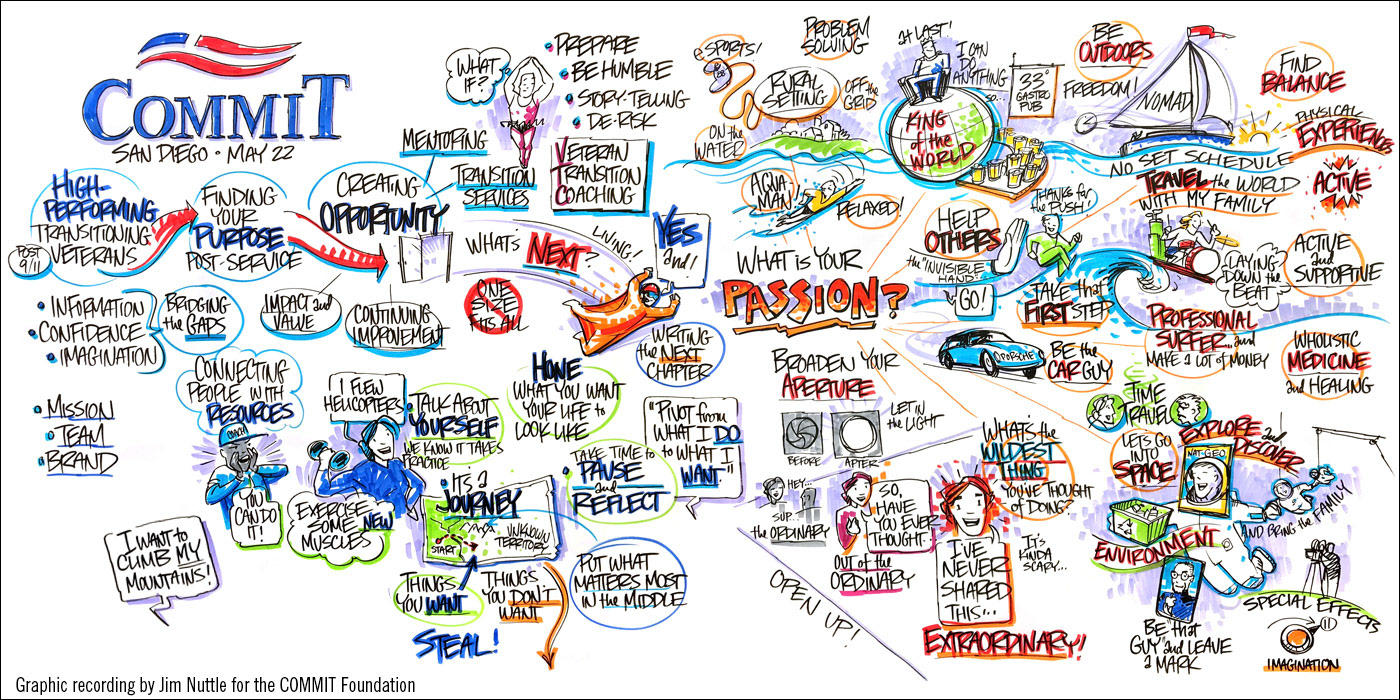 COMMIT
SAN DIEGO • MAY 22
HIGH-
PERFORMING
TRANSITIONING
VETERANS
POST
9/11
FINDING
YOUR
PURPOSE
POST-SERVICE
CREATING
OPPORTUNITY
MENTORING
TRANSITION
SERVICES
WHAT
IF?
• PREPARE
• BE HUMBLE
• STORY-TELLING
• DE-RISK
VETERAN
TRANSITION
COACHING
IMPACT and
VALUE
CONTINUING
IMPROVEMENT
• INFORMATION
• CONFIDENCE
• IMAGINATION
BRIDGING
the GAPS
WHAT'S
NEXT?
LIVING!
YES
and!
ONE
SIZE
FITS ALL
WRITING
the NEXT
CHAPTER
• MISSION
• TEAM
• BRAND
CONNECTING
PEOPLE WITH
RESOURCES
COACH
YOU
CAN DO
IT!
I FLEW
HELICOPTERS
EXERCISE
SOME NEW
MUSCLES
• TALK ABOUT
YOURSELF
WE KNOW IT TAKES
PRACTICE
HONE
WHAT YOU WANT
YOUR LIFE to
LOOK LIKE
• IT'S a
JOURNEY
START
UNKNOWN
TERRITORY
TAKE TIME to
PAUSE
and
REFLECT
"PIVOT from
WHAT I DO
to WHAT I
WANT."
THINGS
YOU WANT
THINGS
YOU DON'T
WANT
STEAL!
PUT WHAT
MATTERS MOST
in the MIDDLE
I WANT to
CLIMB MY
MOUNTAINS!
WHAT is YOUR
PASSION?
SPORTS!
PROBLEM
SOLVING
RURAL
SETTING
OFF the
GRID
ON the
WATER
AQUA
MAN!
RELAXED!
AT LAST!
I CAN
DO
ANYTHING
SO...
KING
of the
WORLD
33°
GASTRO
PUB
BE
OUTDOORS
FREEDOM!
NOMAD
FIND
BALANCE
PHYSICAL
EXPERIENCE
NO SET SCHEDULE
TRAVEL the WORLD
WITH MY FAMILY
ACTIVE
HELP
OTHERS
the "INVISIBLE
HAND"
GO!
THANKS for
the PUSH!
TAKE that
FIRST STEP
LAYING
DOWN the
BEAT
ACTIVE
and
SUPPORTIVE
PORSCHE
BE the
CAR GUY
PROFESSIONAL
SURFER... and
MAKE a LOT of MONEY
WHOLISTIC
MEDICINE
and HEALING
BROADEN YOUR
APERTURE
BEFORE
AFTER
LET IN
the LIGHT
HEY...
SUP...
the ORDINARY
SO,
HAVE
YOU EVER
THOUGHT...
OUT of the
ORDINARY
WHAT'S the
WILDEST
THING
YOU'VE THOUGHT
of DOING?
IT'S
KINDA
SCARY...
I'VE
NEVER
SHARED
THIS...
EXTRAORDINARY!
OPEN UP!
TIME
TRAVEL
LETS GO
INTO
SPACE
EXPLORE and
DISCOVER
NAT-GEO
AND BRING the FAMILY
ENVIRONMENT
BE "that
GUY" and LEAVE
a MARK
SPECIAL EFFECTS
11
IMAGINATION
Graphic recording by Jim Nuttle for the COMMIT Foundation